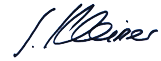 J. Kleiner